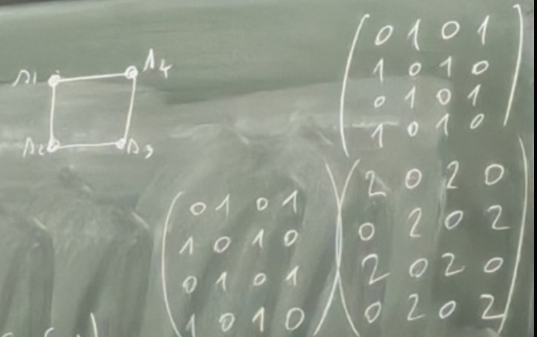 s1 s4
s2 s3
0 1 0 1
1 0 1 0
0 1 0 1
1 0 1 0
0 1 0 1
1 0 1 0
0 1 0 1
1 0 1 0
2 0 2 0
0 2 0 2
2 0 2 0
0 2 0 2